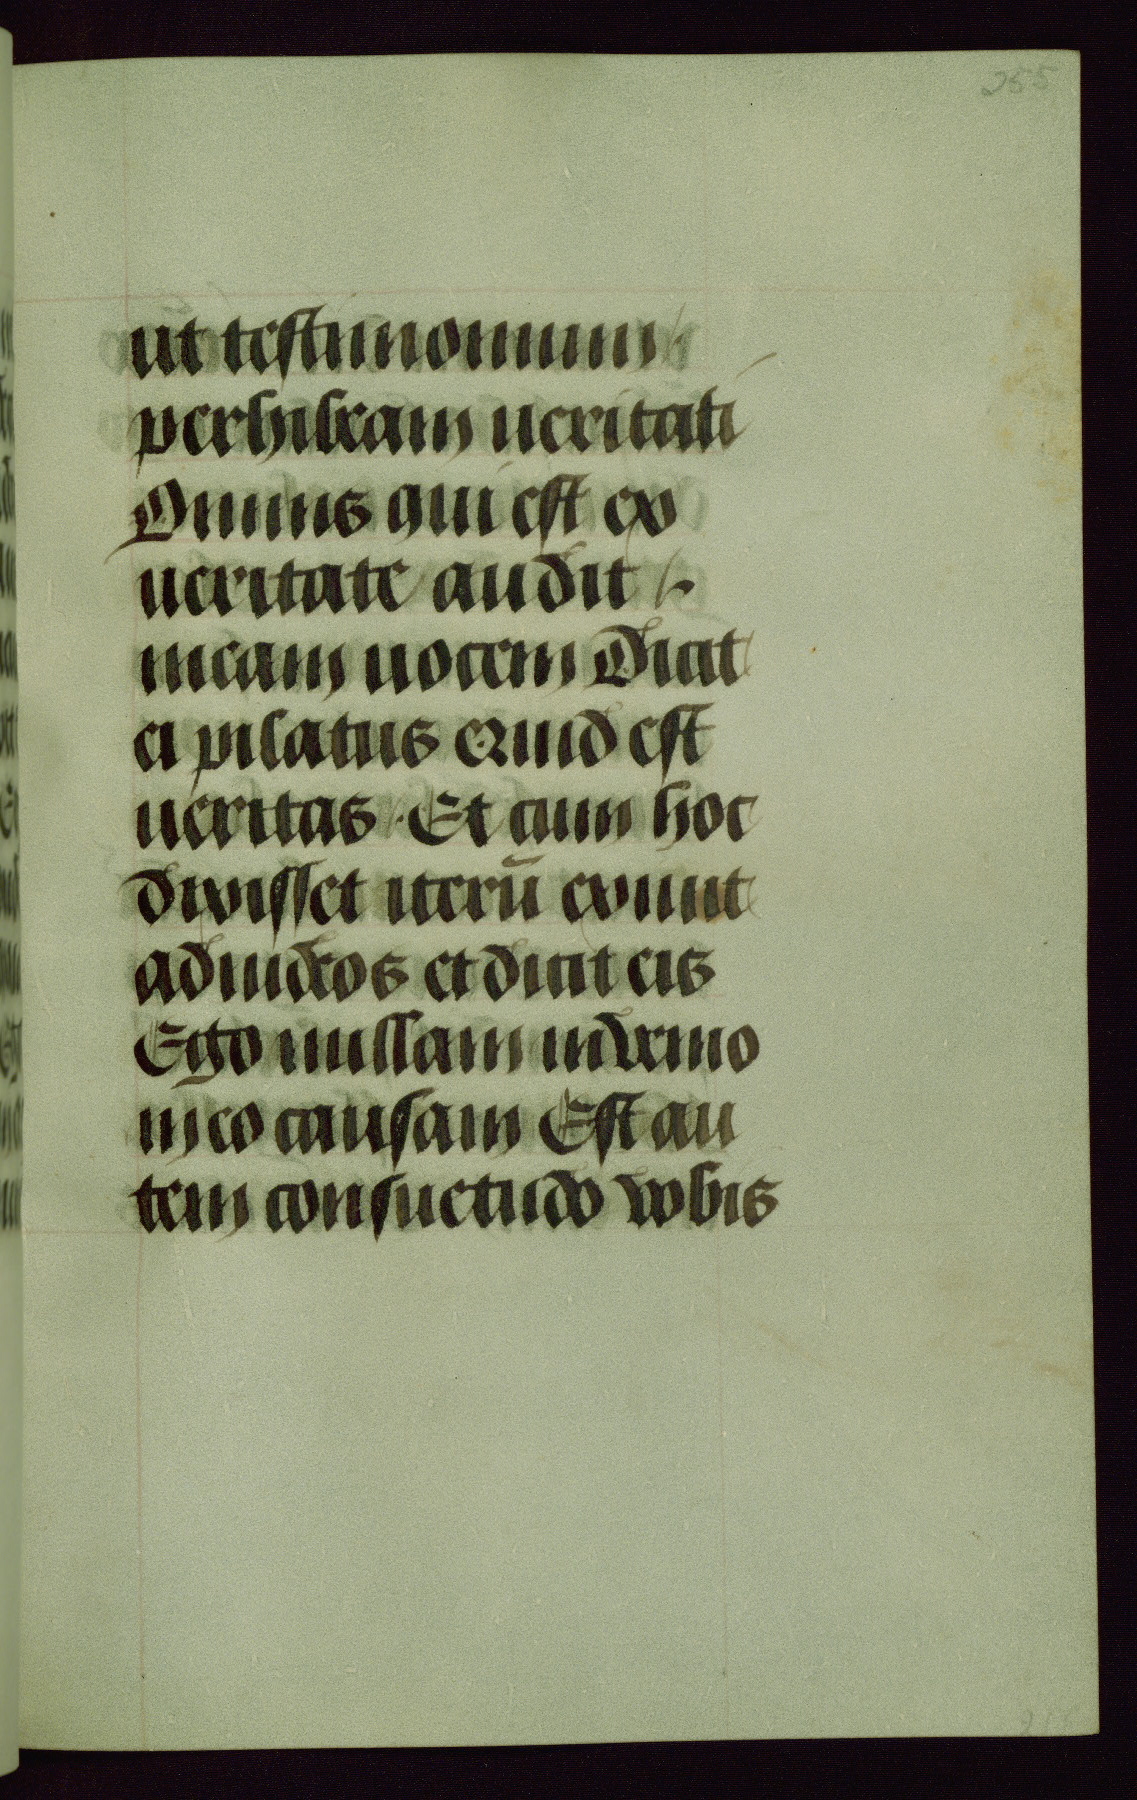 255
ut testimonium
perhibeam ueritati
Omnis qui est ex
ueritate audit
meam uocem Dicit
ei pilatus Quid est
ueritas . Et cum hoc
dixisset iterū exiuit
ad iudeos et dicit eis
Ego nullam inuenio
in eo causam Est au
tem consuetudo vobis